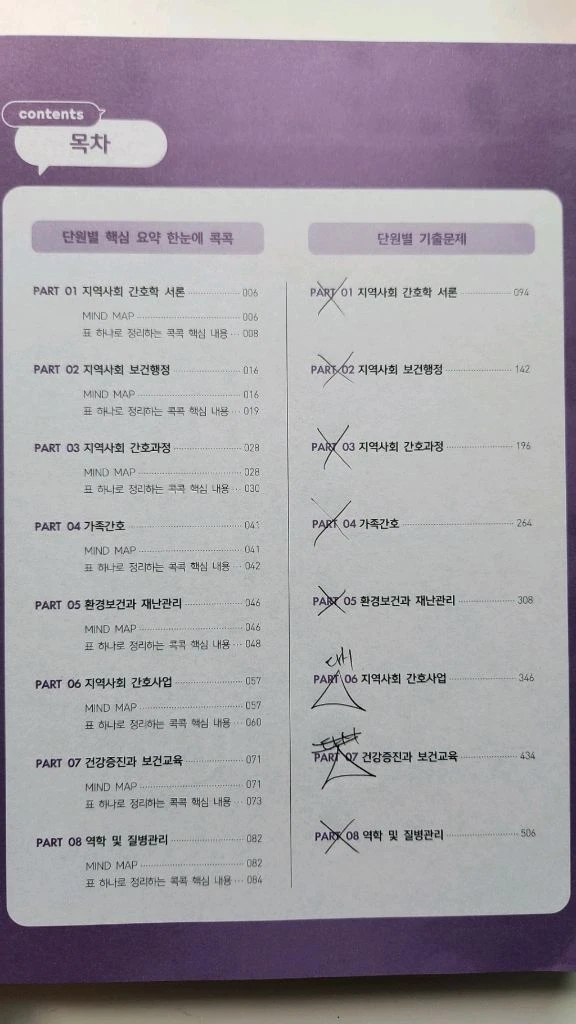 contents
목차
단원별 핵심 요약 한눈에 콕콕
PART 01 지역사회 간호학 서론 006
MIND MAP 006
표 하나로 정리하는 콕콕 핵심 내용 008
PART 02 지역사회 보건행정 016
MIND MAP 016
표 하나로 정리하는 콕콕 핵심 내용 019
PART 03 지역사회 간호과정 028
MIND MAP 028
표 하나로 정리하는 콕콕 핵심 내용 030
PART 04 가족간호 041
MIND MAP 041
표 하나로 정리하는 콕콕 핵심 내용 042
PART 05 환경보건과 재난관리 046
MIND MAP 046
표 하나로 정리하는 콕콕 핵심 내용 048
PART 06 지역사회 간호사업 057
MIND MAP 057
표 하나로 정리하는 콕콕 핵심 내용 060
PART 07 건강증진과 보건교육 071
MIND MAP 071
표 하나로 정리하는 콕콕 핵심 내용 073
PART 08 역학 및 질병관리 082
MIND MAP 082
표 하나로 정리하는 콕콕 핵심 내용 084
단원별 기출문제
PART 01 지역사회 간호학 서론 094
PART 02 지역사회 보건행정 142
PART 03 지역사회 간호과정 196
PART 04 가족간호 264
PART 05 환경보건과 재난관리 308
PART 06 지역사회 간호사업 346
PART 07 건강증진과 보건교육 434
PART 08 역학 및 질병관리 506